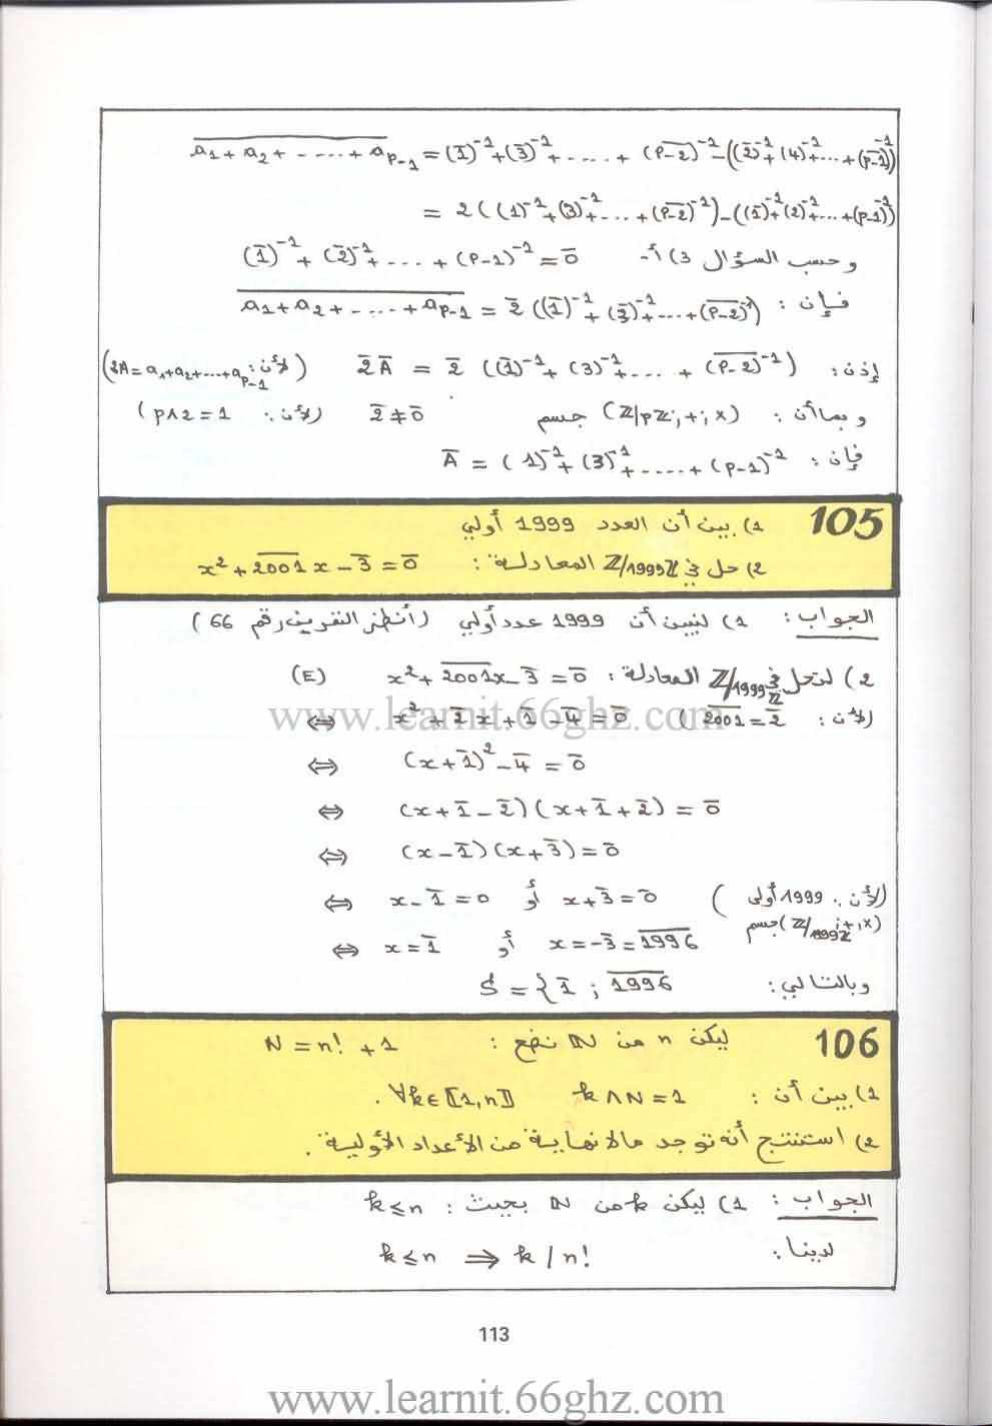 a₁ + a₂ + ---- + a_{p-1} = (1̅)⁻¹ + (3̅)⁻¹ + .... + (p-2)⁻¹ - ((2̅)⁻¹ + (4)⁻¹ + ... + (p-1)⁻¹)
= 2((1)⁻¹ + (3)⁻¹ + ... + (p-2)⁻¹) - ((1)⁻¹ + (2)⁻¹ + ... + (p-1)⁻¹)
و حسب السؤال 3) أ- (1̅)⁻¹ + (2̅)⁻¹ + ... + (p-1)⁻¹ = 0̅
فإن : a₁ + a₂ + ---- + a_{p-1} = 2̅ ((1̅)⁻¹ + (3̅)⁻¹ + ... + (p-2)⁻¹)
إذن : 2̅ A̅ = 2̅ ((1̅)⁻¹ + (3)⁻¹ + ... + (p-2)⁻¹) (لأن : 2A = a₁ + a₂ + ... + a_{p-1})
و بما أن : (ℤ/pℤ ; + ; ×) جسم 2̅ ≠ 0̅ (لأن : p∧2 = 1)
فإن : A̅ = (1)⁻¹ + (3)⁻¹ + ..... + (p-1)⁻¹
105 1) بين أن العدد 1999 أولي
2) حل في ℤ/1999ℤ المعادلة : x² + 2001 x - 3̅ = 0̅
الجواب : 1) لنبين أن 1999 عدد أولي (أنظر التمرين رقم 66)
2) لنحل في ℤ/1999ℤ المعادلة : x² + 2001x - 3̅ = 0̅ (E)
(لأن : 2001 = 2̅) ⇔ x² + 2̅ x + 1̅ - 4̅ = 0̅
⇔ (x + 1̅)² - 4̅ = 0̅
⇔ (x + 1̅ - 2̅)(x + 1̅ + 2̅) = 0̅
⇔ (x - 1̅)(x + 3̅) = 0̅
⇔ x - 1̅ = 0 أو x + 3̅ = 0̅ (لأن : 1999 أولي
⇔ x = 1̅ أو x = -3̅ = 1996 (ℤ/1999ℤ ; + ; ×) جسم)
وبالتالي : S = {1̅ ; 1996
106 ليكن n من ℕ نضع : N = n! + 1
1) بين أن : ∀k ∈ ⟦1,n⟧ k ∧ N = 1 .
2) استنتج أنه توجد مالا نهاية من الأعداد الأولية .
الجواب : 1) ليكن k من ℕ بحيث : k ≤ n
لدينا : k ≤ n ⇒ k / n!
113
www.learnit.66ghz.com
www.learnit.66ghz.com